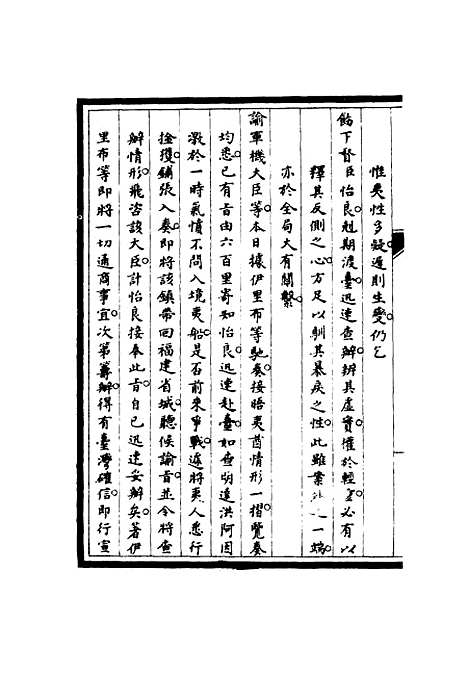 惟夷性多疑遲則生變仍乞
飭下督臣怡良尅期渡臺迅速查辦辨其虛實權於輕重必有以
釋其反側之心方足以馴其暴戾之性此雖案外之一端
亦於全局大有關繫
諭軍機大臣等本日據伊里布等馳奏接晤夷酋情形一摺覽奏
均悉已有旨由六百里寄知怡良迅速赴臺如查明達洪阿因
激於一時氣憤不問入境夷船是否前來爭戰遽將夷人悉行
搶獲鋪張入奏即將該鎮帶回福建省城聽候諭旨並令將查
辦情形飛咨該大臣計怡良接奉此旨自已迅速妥辦矣著伊
里布等即將一切通商事宜次第籌辦得有臺灣確信即行宣